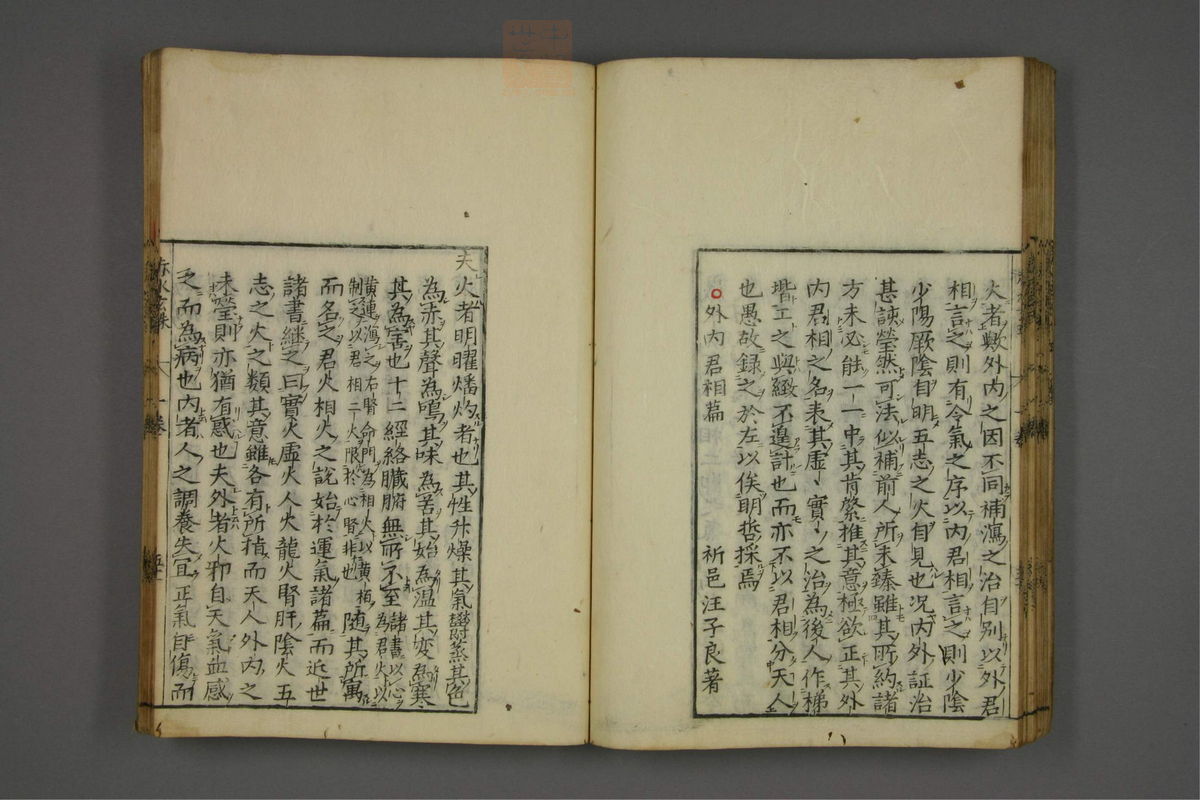 火者數外内之因不同補瀉之治自別以外君
相言之則有令氣之序以内君相言之則少陰
少陽厥陰自明五志之火自見也况内外証治
甚該瑩然可法似補前人所未臻雖其所約諸
方未必能一一中其肯綮推其意極欲正其外
内君相之名表其虛、實、之治為後人作梯
堦工之與緻不遑計也而亦不以君相分天人
也愚故録之於左以俟明哲採焉
外内君相篇 祈邑汪子良著
夫火者明曜燔灼者也其性升燥其氣鬱蒸其色
為赤其聲為鳴其味為苦其始為溫其変為寒
其為害也十二經絡臓腑無所不至諸書以心為君火以
黄連瀉之右腎命門為相火以黄栢制之以君相二火限於心腎非也随其所寓
而名之君火相火之說始於運氣諸篇而近世
諸書継之曰實火虛火人火龍火腎肝陰火五
志之火之類其意雖各有所指而天人外内之
未瑩則亦猶有惑也夫外者火邪自天氣血感
之而為病也内者人之調養失冝正氣自傷而